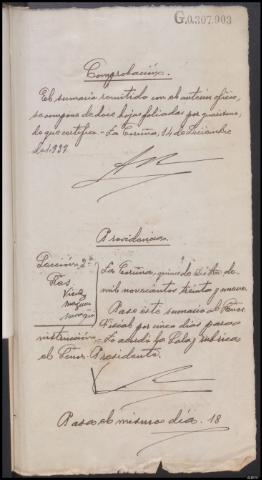 G.0.307.003
Comprobación.
El sumario remitido con el anterior oficio,
se compone de doce hojas foliadas
de que certifico.- La Coruña, 14 de Diciembre
de 1.939.
Providencia
Sección 2ª
La Coruña, quince de Dbre. de
mil novecientos treinta y nueve.
Pase este sumario al Señor
Fiscal por cinco días para
instrucción.- Lo acordó la Sala y rubrica
el Señor Presidente.
Pasa el mismo día. 18